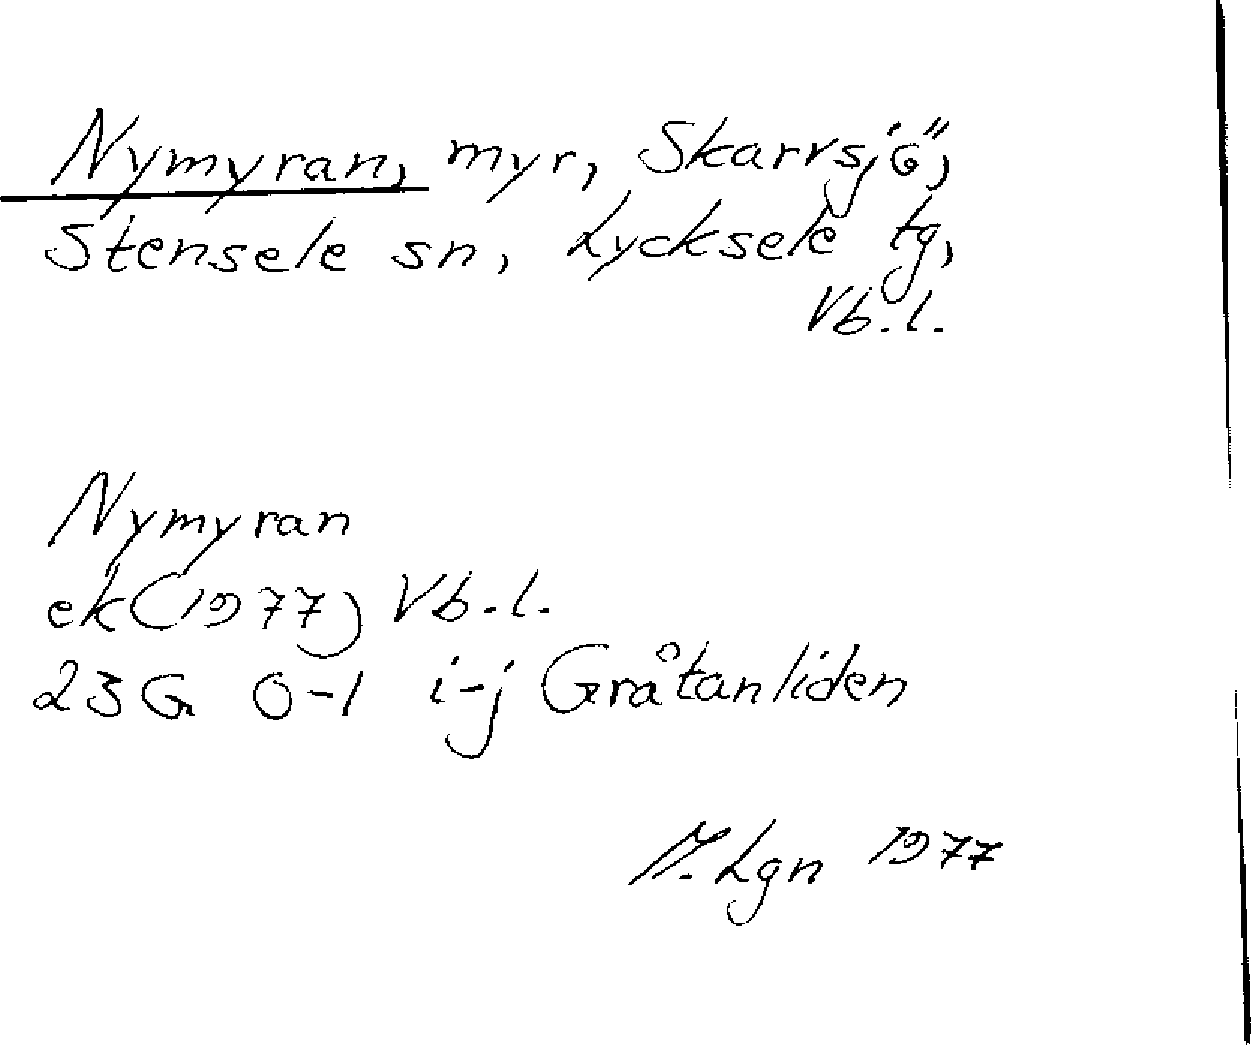 Nymyran, myr, Skarvsjö,
Stensele sn, Lycksele tg,
Vb.l.
Nymyran
ek(1977) Vb.l.
23G 0-1 i-j Gråtanliden
Lgn 1977